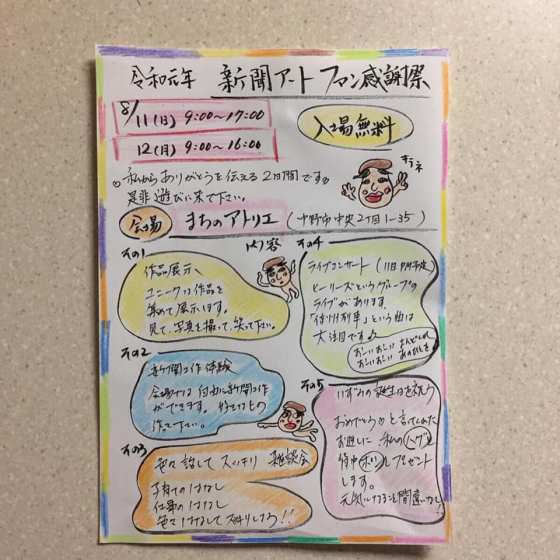 令和元年 新聞アート ファン感謝祭
8/11(日) 9:00〜17:00
12(月) 9:00〜16:00
入場無料
私からありがとうを伝える2日間です。
是非遊びに来て下さい。
会場 まちのアトリエ (中野市中央2丁目1-35)
内容
その1
作品展示、
ユニークな作品を
集めて展示します。
見て、写真を撮って、笑って下さい。
その2
新聞工作体験
会場では自由に新聞工作
ができます。
作って下さい。
その3
色々話してスッキリ 雑談会
子育てのはなし
仕事のはなし
色々はなしてスッキリしよう!!
その4
ライブコンサート (11日
ピーリーズというグループの
ライブがあります。
という曲は
大注目です
その5
いずみの誕生日を祝う
おめでとうと言ってくれた
お返しに 私のハグと
プレゼント
します。
元気になること間違いなし!